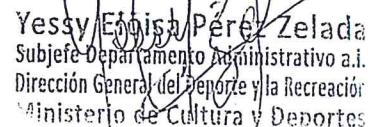 Yessy Eloisa Pérez Zelada
Subjefe Departamento Administrativo a.i.
Dirección General del Deporte y la Recreación
Ministerio de Cultura y Deportes